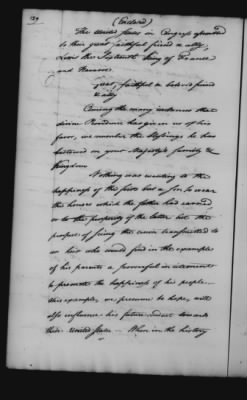 (Enclosed)
The United States in Congress assembled
to their great faithful friend & ally,
Lewis the Sixteenth King of France
and Navarre
great, faithful & beloved friend
& ally
Among the many instances that
divine Providence has given us of his
favor, we number the blessings he has
bestowed on your Majesty's family &
Kingdom
Nothing was wanting to the
happiness of the first but a Son to wear
the honors which the father had earned
or to the prosperity of the latter but the
prospect of seeing the crown transmitted to
an heir who would find in the example
of his parent a powerful incitement
to promote the happiness of his people
this example, we presume to hope, will
also influence his future conduct towards
these United States. When in the history